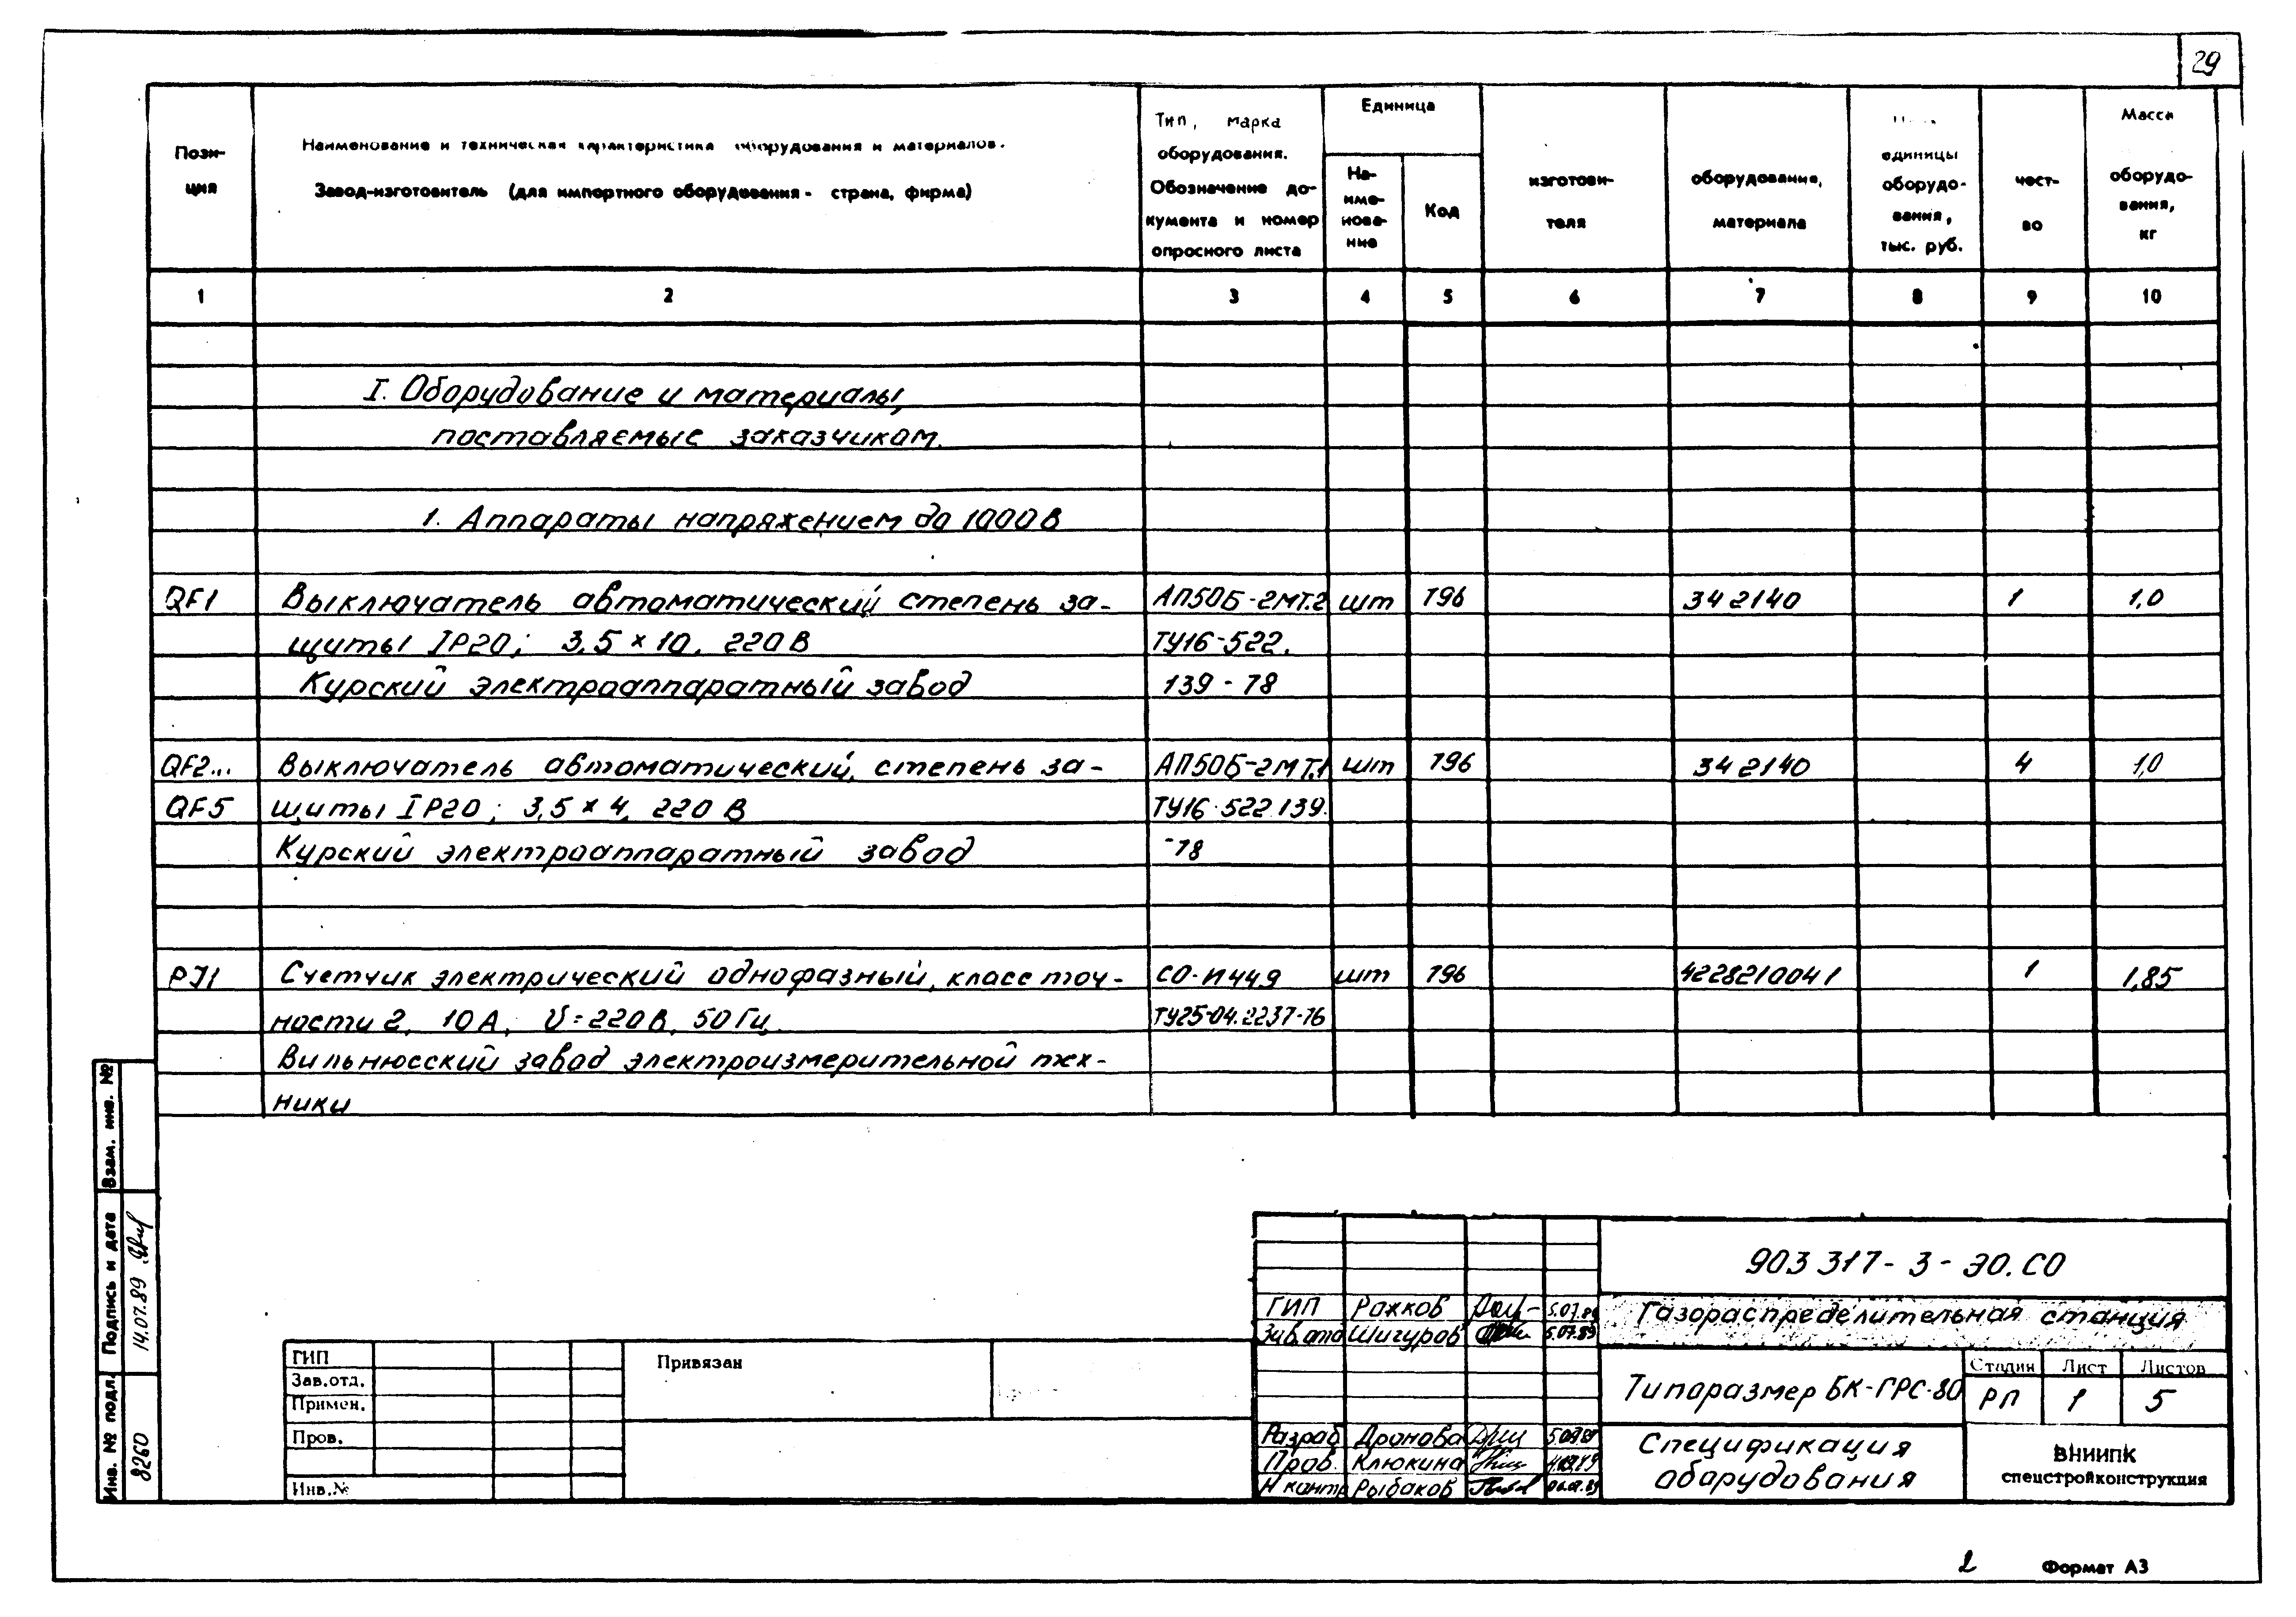 29
Пози-
ция
Наименование и техническая характеристика оборудования и материалов.
Завод-изготовитель (для импортного оборудования - страна, фирма)
Тип, марка
оборудования.
Обозначение до-
кумента и номер
опросного листа
Единица
На-
име-
нова-
ние
Код
изготови-
теля
оборудования,
материала
единицы
оборудо-
вания,
тыс. руб.
чест-
во
Масса
оборудо-
вания,
кг
1 2 3 4 5 6 7 8 9 10
I. Оборудование и материалы,
поставляемые заказчиком.
1. Аппараты напряжением до 1000 В
QF1 Выключатель автоматический степень за- АП50Б-2МТ.2 шт 796 342140 1 1,0
щиты IP20; 3,5 × 10, 220 В ТУ16-522.
Курский электроаппаратный завод 139-78
QF2... Выключатель автоматический, степень за- АП50Б-2МТ.1 шт 796 342140 4 1,0
QF5 щиты IP20; 3,5 × 4, 220 В ТУ16-522.139.
Курский электроаппаратный завод -78
PJ1 Счетчик электрический однофазный, класс точ- СО-И449 шт 796 4228210041 1 1,85
ности 2, 10А, U=220В, 50 Гц. ТУ25-04.2237-76
Вильнюсский завод электроизмерительной тех-
ники
Взам. инв. №
Подпись и дата
14.07.89
Инв. № подл.
8260
ГИП
Зав.отд.
Примен.
Пров.
Инв.№
Привязан
903 317-3-ЭО.СО
ГИП Рожков 5.07.89
Зав.отд Шигуров 5.07.89
Газораспределительная станция
Типоразмер БК-ГРС-80
Стадия Лист Листов
РП 1 5
Разраб Дронова
Пров. Клюкина
Н контр Рыбаков
Спецификация
оборудования
ВНИИПК
спецстройконструкция
2 Формат А3